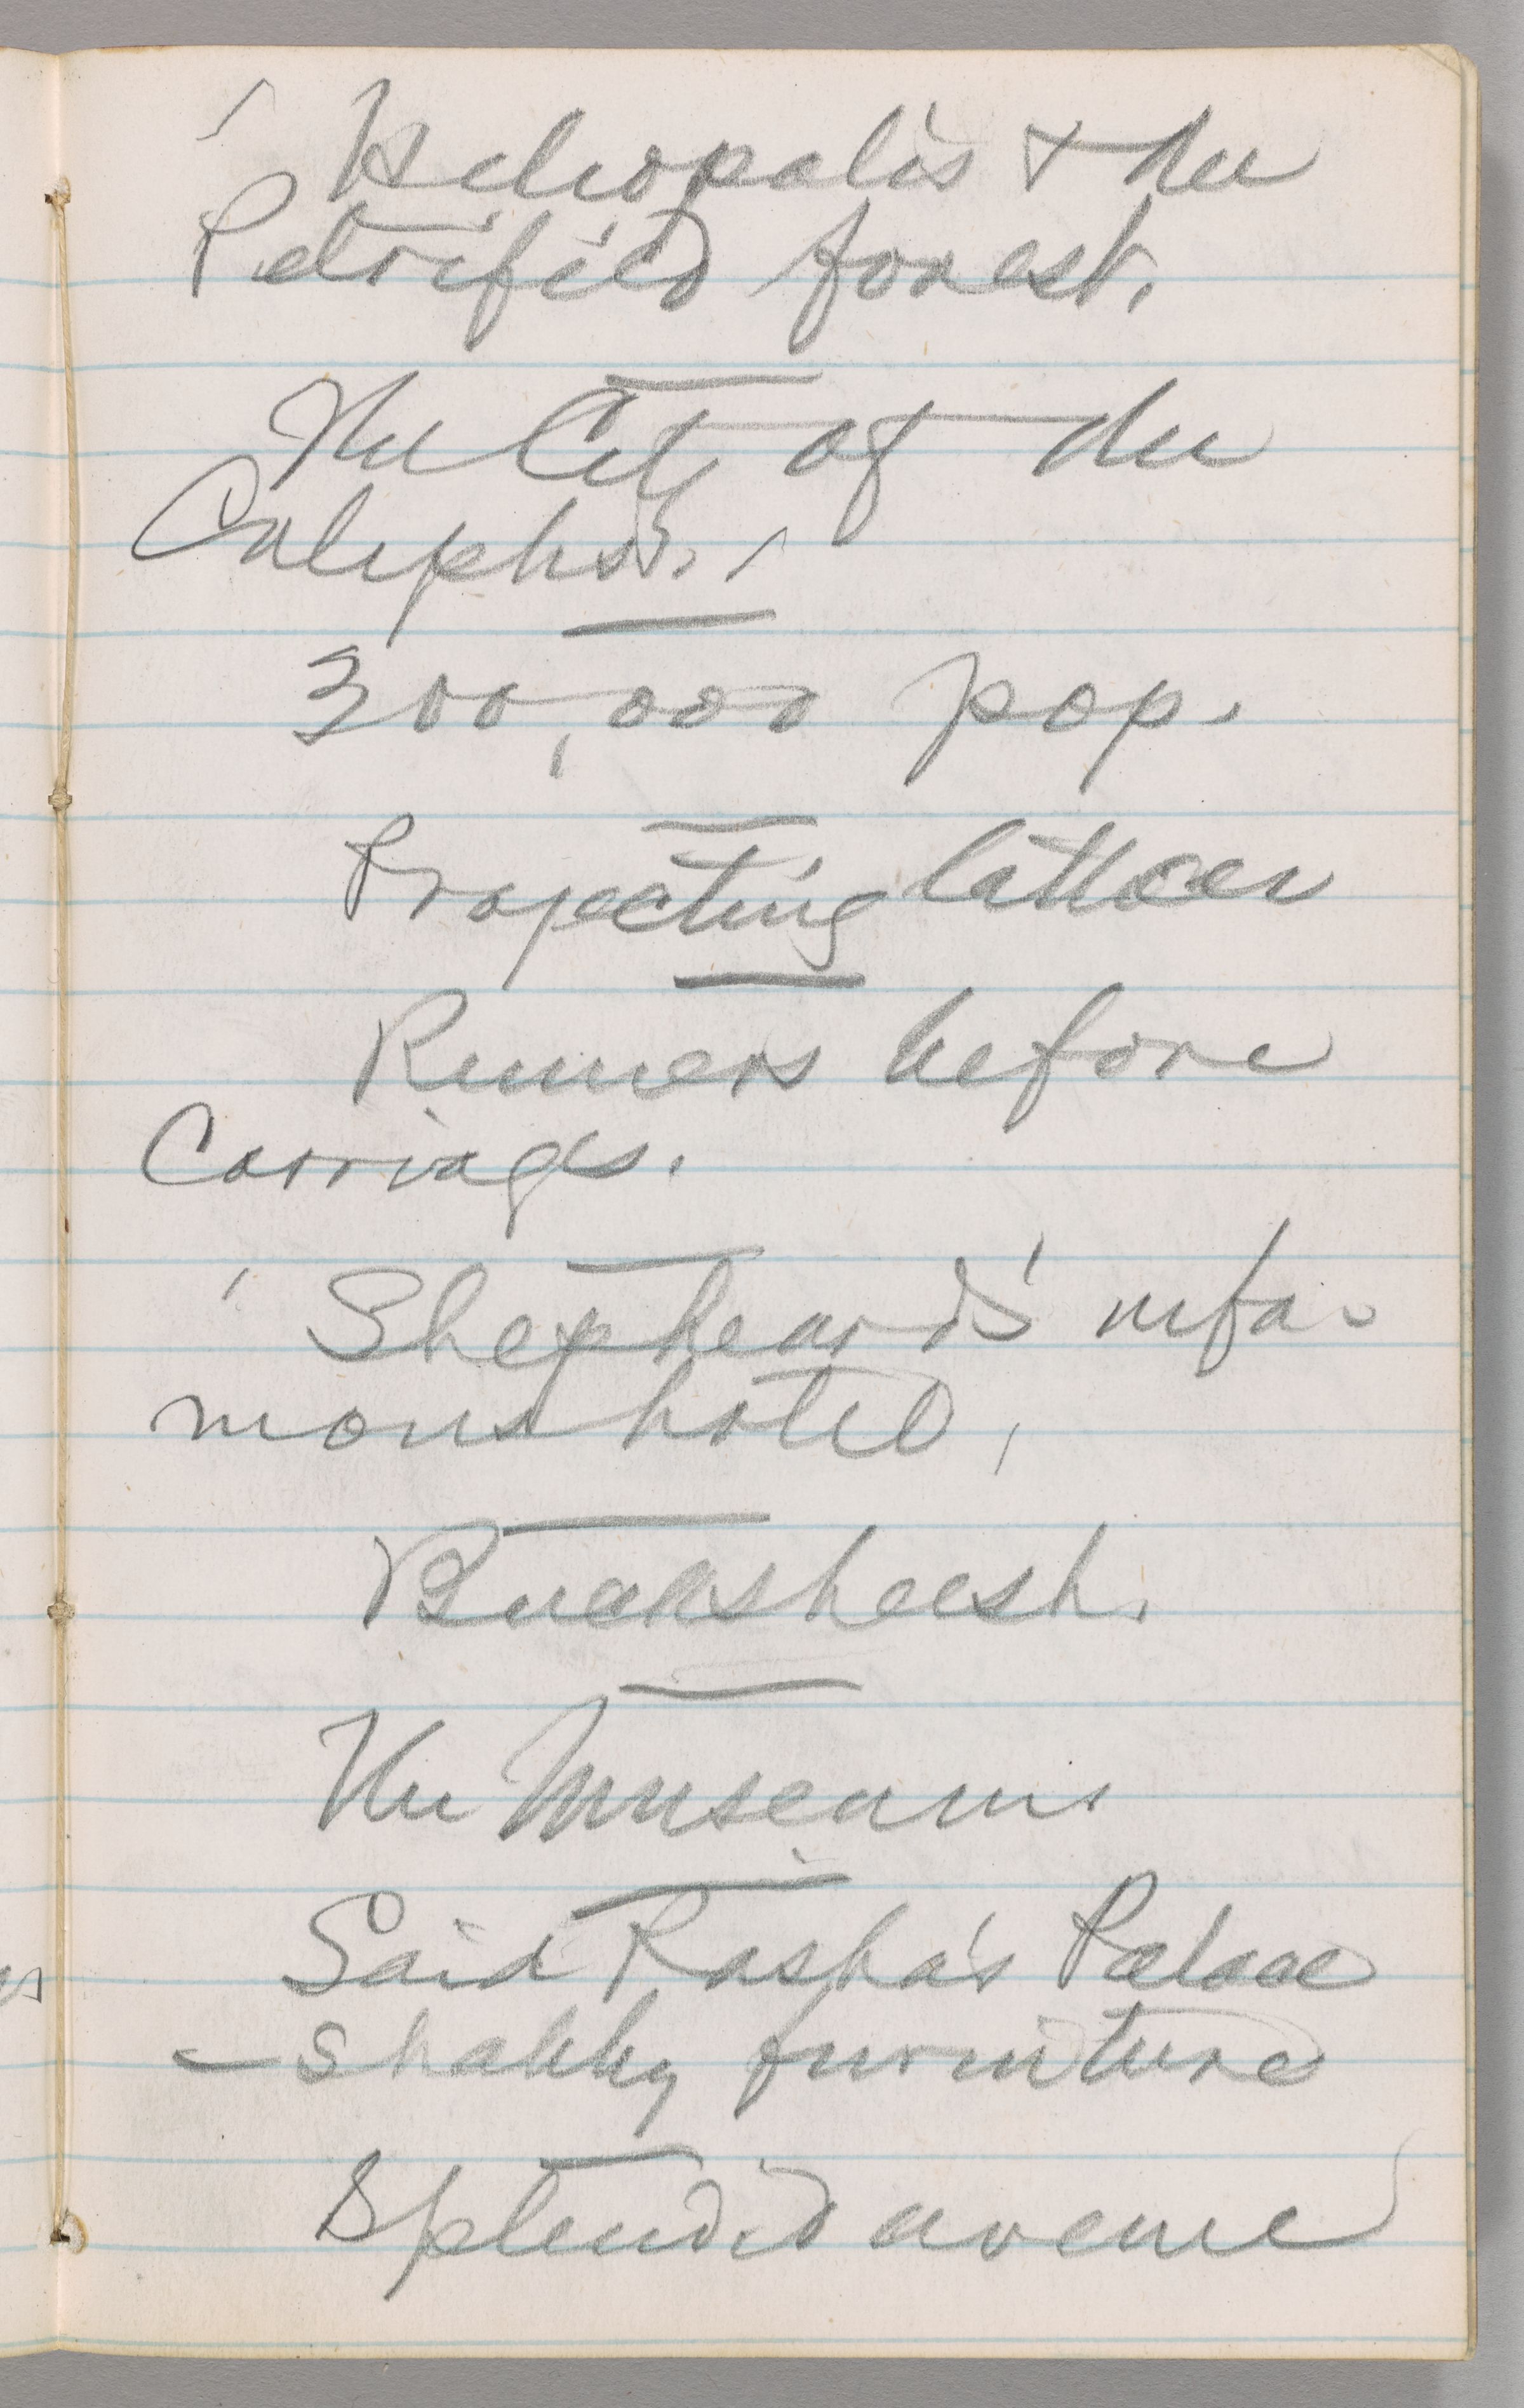 Heliopolis & the
Petrified forest.
The City of the
Caliphs.
300,000 pop.
Projecting lattices
Runners before
Carriages.
Shepheard's infa-
mous hotel.
Bucksheesh.
The Museum.
Said Pasha's Palace
— shabby furniture
Splendid avenue